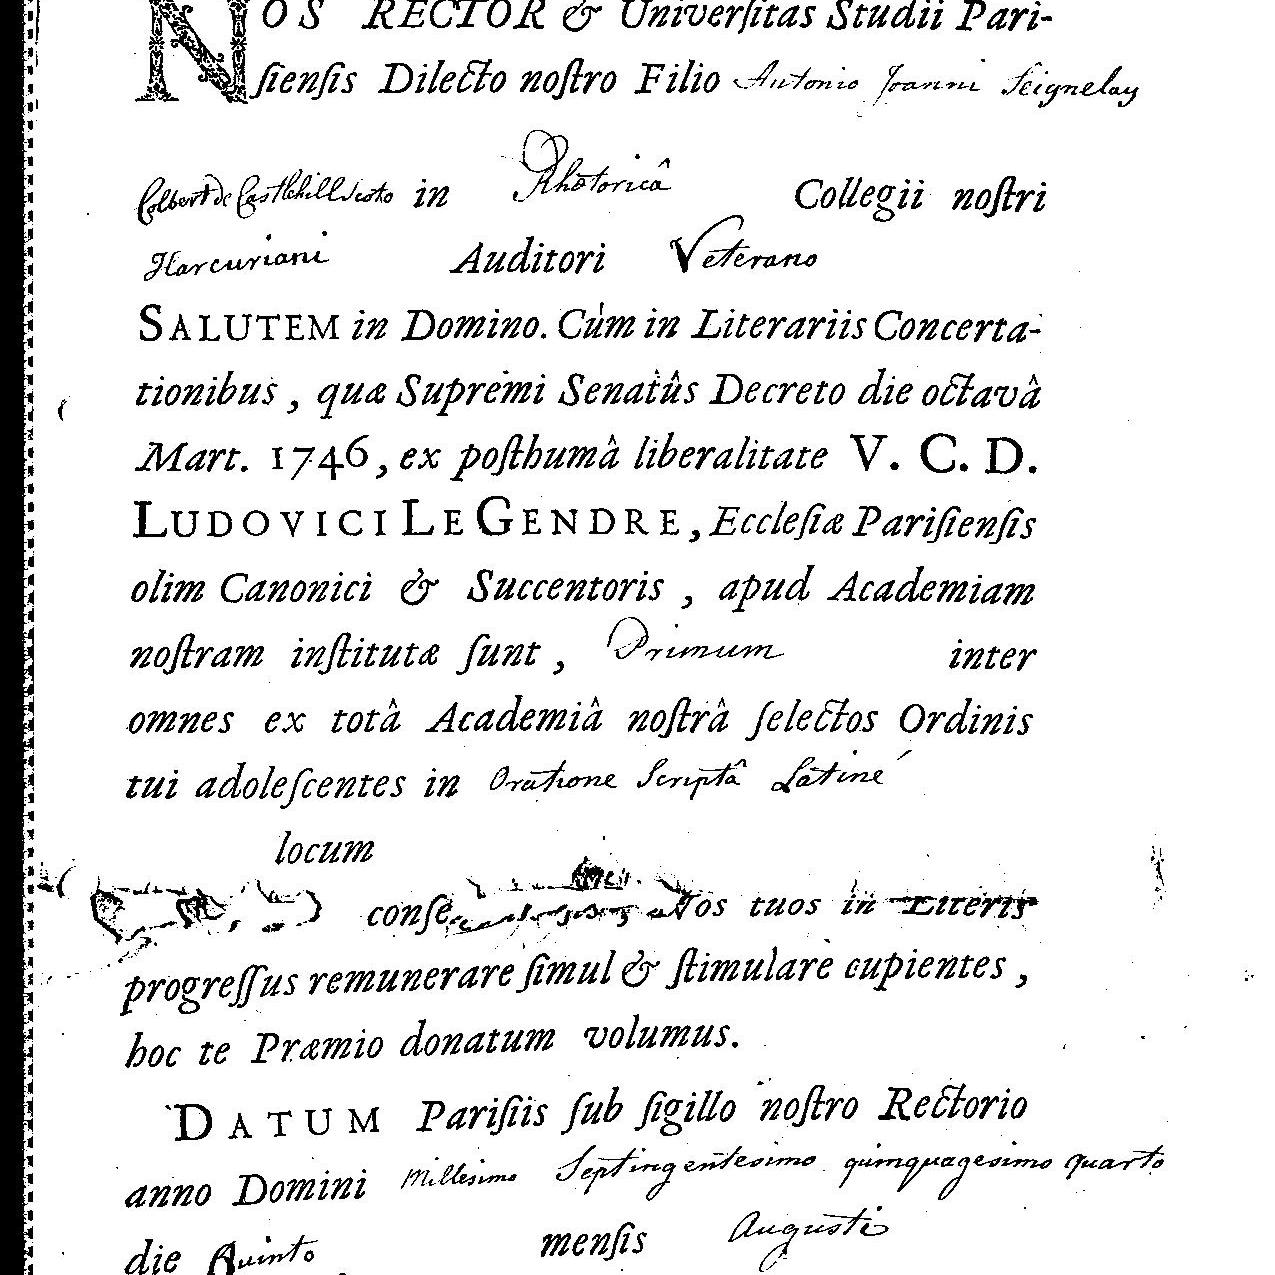 NOS RECTOR & Univerſitas Studii Pari-
ſienſis Dilecto noſtro Filio Antonio Joanni Seignelay
Colbert de Castlehill Scoto in Rhetoricâ Collegii noſtri
Harcuriani Auditori Veterano
SALUTEM in Domino. Cùm in Literariis Concerta-
tionibus, quæ Supremi Senatûs Decreto die octavâ
Mart. 1746, ex poſthumâ liberalitate V. C. D.
LUDOVICI LE GENDRE, Eccleſiæ Pariſienſis
olim Canonici & Succentoris, apud Academiam
noſtram inſtitutæ ſunt, Primum inter
omnes ex totâ Academiâ noſtrâ ſelectos Ordinis
tui adoleſcentes in Oratione Scriptâ Latinè
locum
conſe Nos tuos in Literis
progreſſus remunerare ſimul & ſtimulare cupientes,
hoc te Præmio donatum volumus.
DATUM Pariſiis ſub ſigillo noſtro Rectorio
anno Domini Millesimo Septingentesimo quinquagesimo quarto
die Quinto menſis Augusti